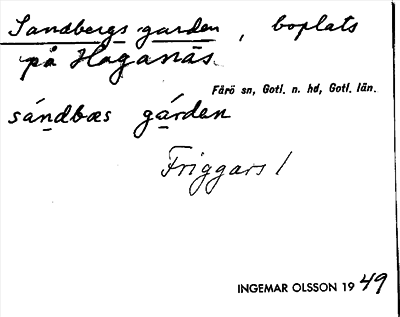 Sandbergs garden, boplats
på Haganäs.
Fårö sn, Gotl. n. hd, Gotl. län.
sándbæs gárden
Friggars 1
INGEMAR OLSSON 1949